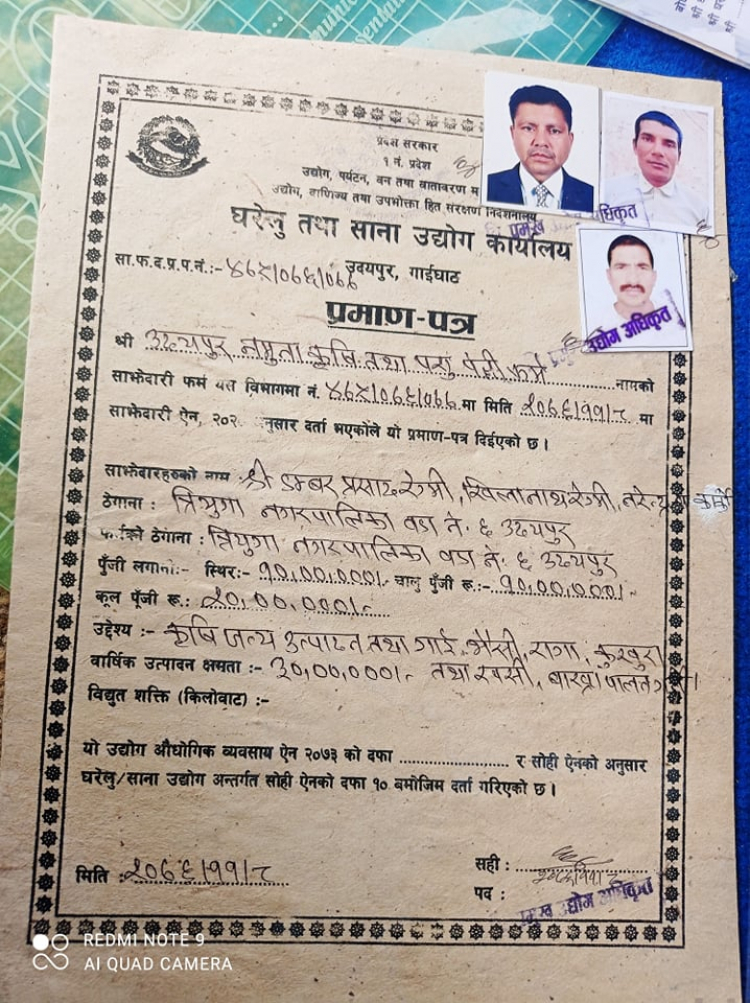 प्रदेश सरकार
१ नं. प्रदेश
उद्योग, पर्यटन, वन तथा वातावरण म
उद्योग, वाणिज्य तथा उपभोक्ता हित संरक्षण निर्देशनालय
घरेलु तथा साना उद्योग कार्यालय
प्रमुख अधिकृत
उदयपुर, गाईघाट
सा.फ.द.प्र.प.नं.:-४६५/०७६/०७७
प्रमाण-पत्र
उद्योग अधिकृत
श्री उदयपुर नमुना कृषि तथा पशु पंक्षी फर्म नामको
साझेदारी फर्म यस विभागमा नं. ४६५/०७६/०७७ मा मिति २०७६/११/८ मा
साझेदारी ऐन, २०२ नुसार दर्ता भएकोले यो प्रमाण-पत्र दिईएको छ ।
साझेदारहरुको नाम श्री डम्बर प्रसाद रेग्मी, खिलानाथ रेग्मी, नरेन्द्र कार्की
ठेगाना : त्रियुगा नगरपालिका वडा नं. ६ उदयपुर
ठेगाना : त्रियुगा नगरपालिका वडा नं. ६ उदयपुर
पुँजी लगानी:- स्थिर:- १०,००,०००।- चालु पुँजी रू.:- १०,००,०००।-
कूल पूँजी रू.: २०,००,०००।-
उद्देश्य :- कृषि जन्य उत्पादन तथा गाई, भैसी, रागा, कुखुरा
वार्षिक उत्पादन क्षमता :- ३०,००,०००।- तथा खसी, बाख्रा पालन
विद्युत शक्ति (किलोवाट) :-
यो उद्योग औधोगिक व्यवसाय ऐन २०७३ को दफा .................... र सोही ऐनको अनुसार
घरेलु/साना उद्योग अन्तर्गत सोही ऐनको दफा १० बमोजिम दर्ता गरिएको छ ।
सही :
मिति : २०७६/११/८
पद :
प्रमुख उद्योग अधिकृत
REDMI NOTE 9
AI QUAD CAMERA